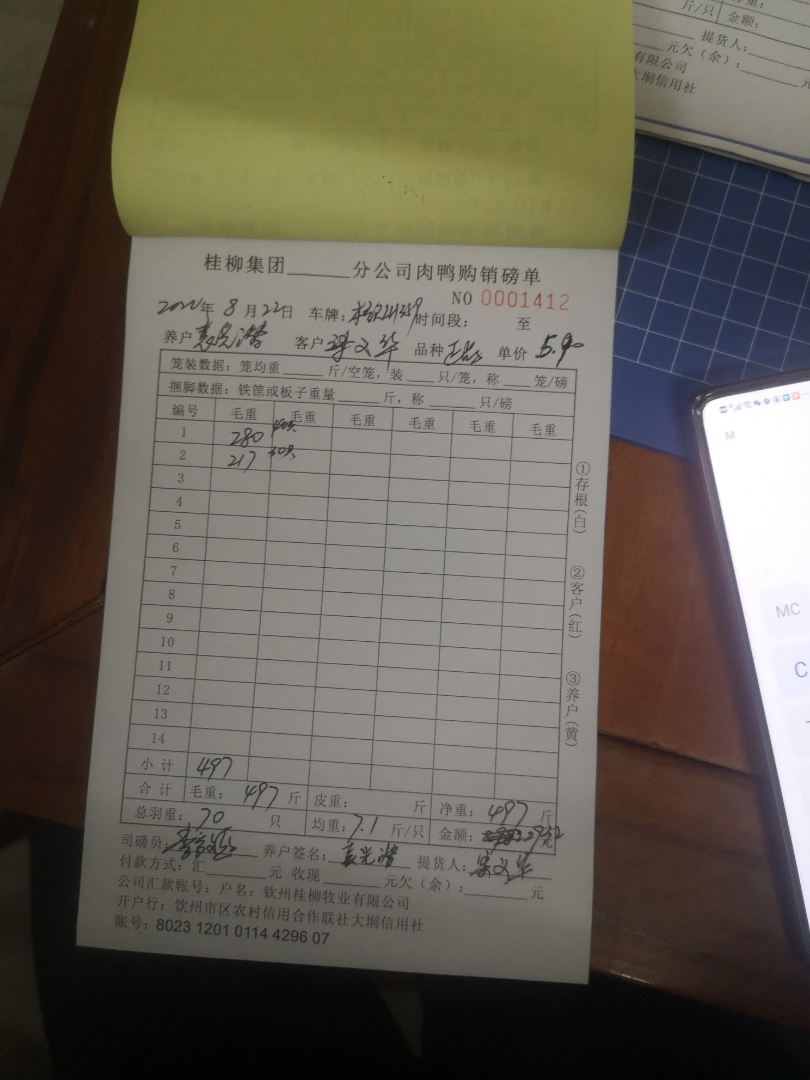 斤/只 金额:
提货人:
元欠（余）:
有限公司
大垌信用社
桂柳集团______分公司肉鸭购销磅单
NO 0001412
年 8 月 22日 车牌: 时间段: 至
养户 客户 品种 正品 单价 5.90
笼装数据: 笼均重____斤/空笼, 装___只/笼, 称___笼/磅
捆脚数据: 铁筐或板子重量_____斤, 称_____只/磅
编号 毛重 毛重 毛重 毛重 毛重 毛重
1 280 40只
2 217 30只
3
4
5
6
7
8
9
10
11
12
13
14
小计 497
合计 毛重: 497 斤 皮重: 斤 净重: 497 斤
总羽重: 70 只 均重: 7.1 斤/只 金额: 2932 元
司磅员: 养户签名: 提货人:
付款方式: 汇______元 收现______元欠（余）:______元
公司汇款帐号: 户名: 钦州桂柳牧业有限公司
开户行: 钦州市区农村信用合作联社大垌信用社
账号: 8023 1201 0114 4296 07
①存根(白)
②客户(红)
③养户(黄)
M
MC
C